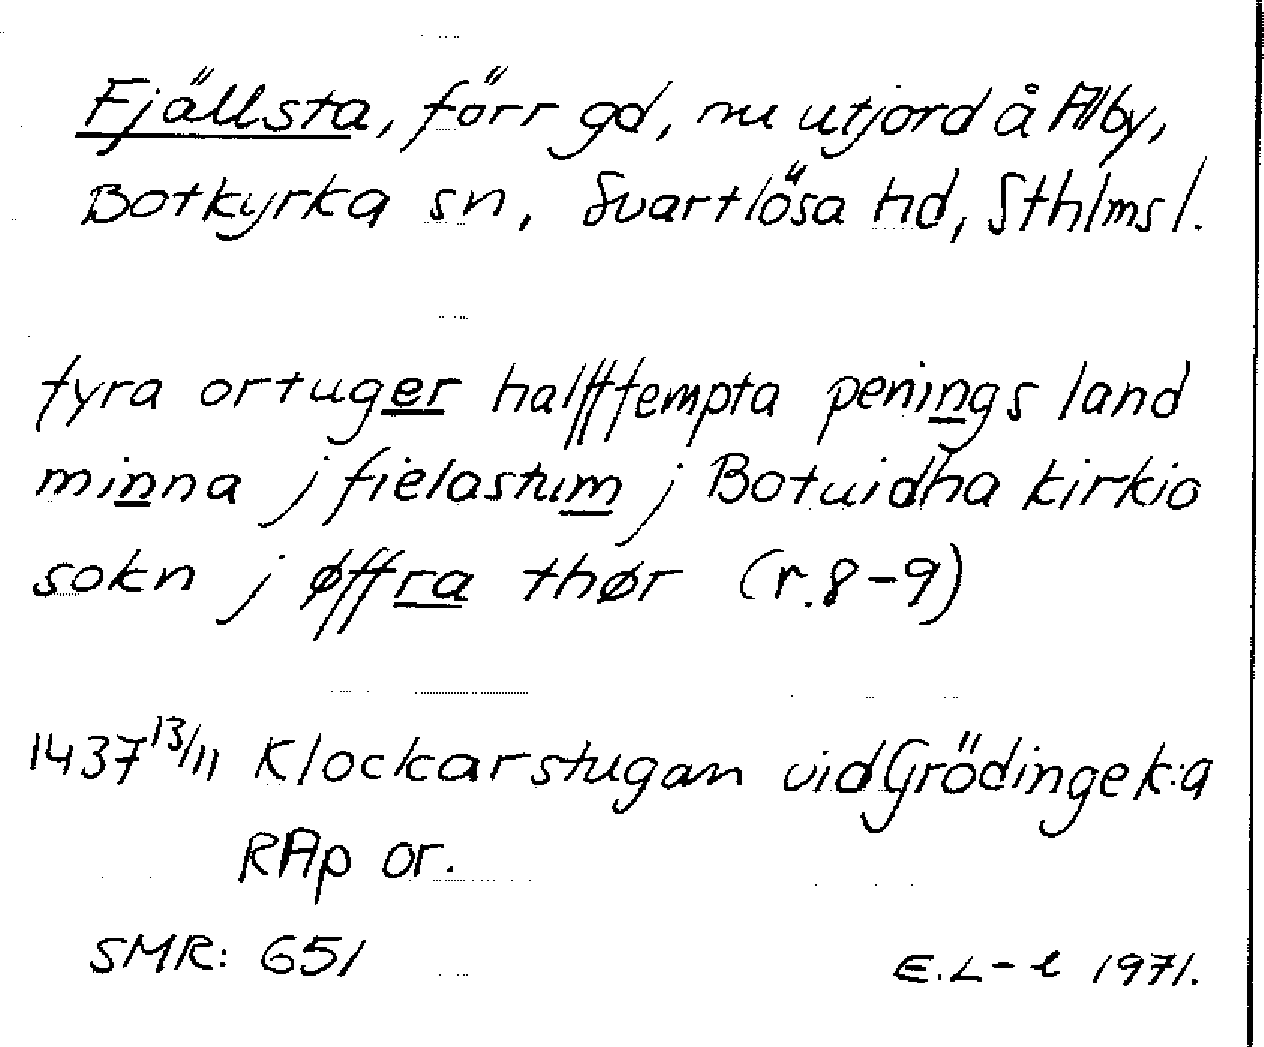 Fjällsta, förr gd, nu utjord å Alby,
Botkyrka sn, Svartlösa hd, Sthlms l.
fyra ortuger halfffempta penings land
minna j fielastum j Botuidha kirkio
sokn j øffra thør (r. 8-9)
1437 13/11 Klockarstugan vid Grödinge k:a
RAp or.
SMR: 651
E. L-l 1971.